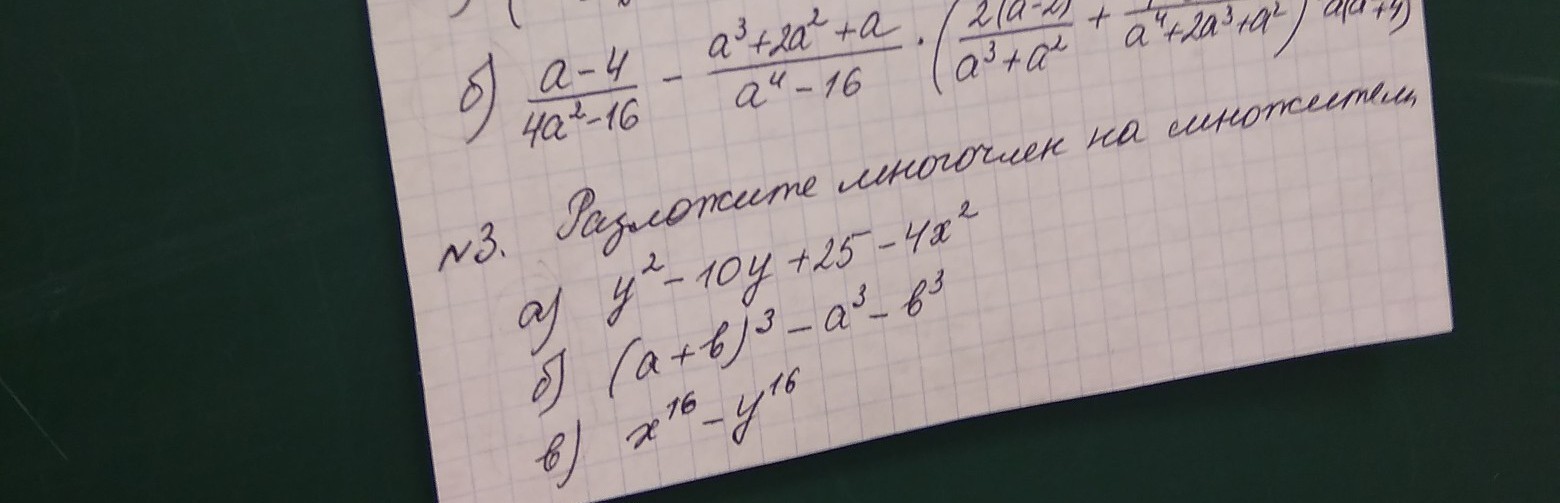 б) (a-4)/(4a²-16) - (a³+2a²+a)/(a⁴-16) · (2(a-2)/(a³+a²) + /(a⁴+2a³+a²)) a(a+4)
№3. Разложите многочлен на множители
а) y²-10y+25-4x²
б) (a+b)³-a³-b³
в) x¹⁶-y¹⁶